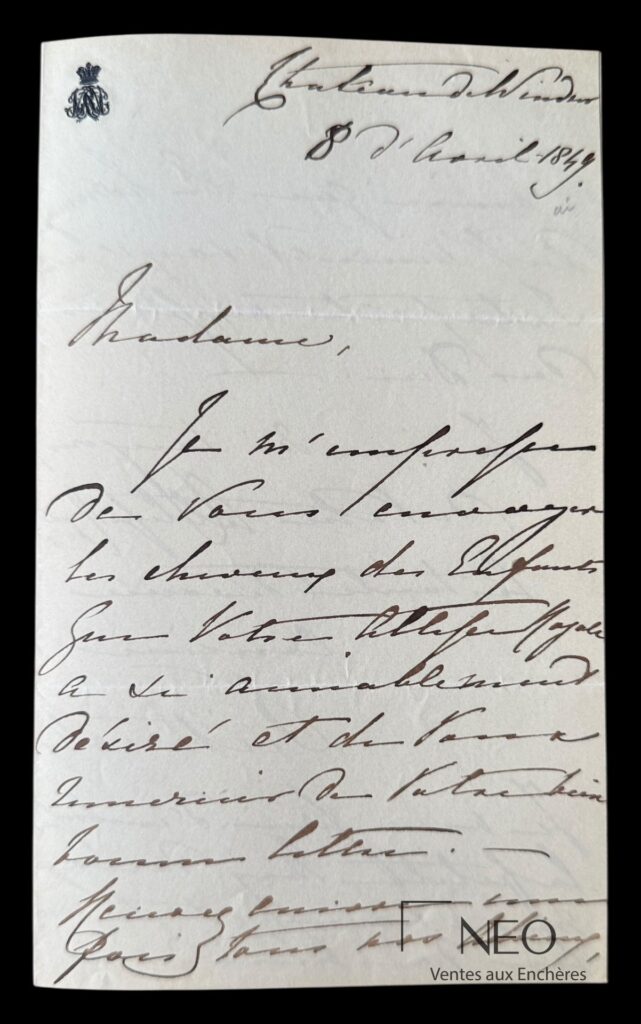 Château de Windsor
8 d'Avril 1849.
Madame,
Je m'empresse
de Vous envoyer
les cheveux des Enfants
que Votre Altesse Royale
a si aimablement
désiré et de Vous
remercier de Votre bien
bonne lettre. —
encore une
fois tous nos
NEO
Ventes aux Enchères